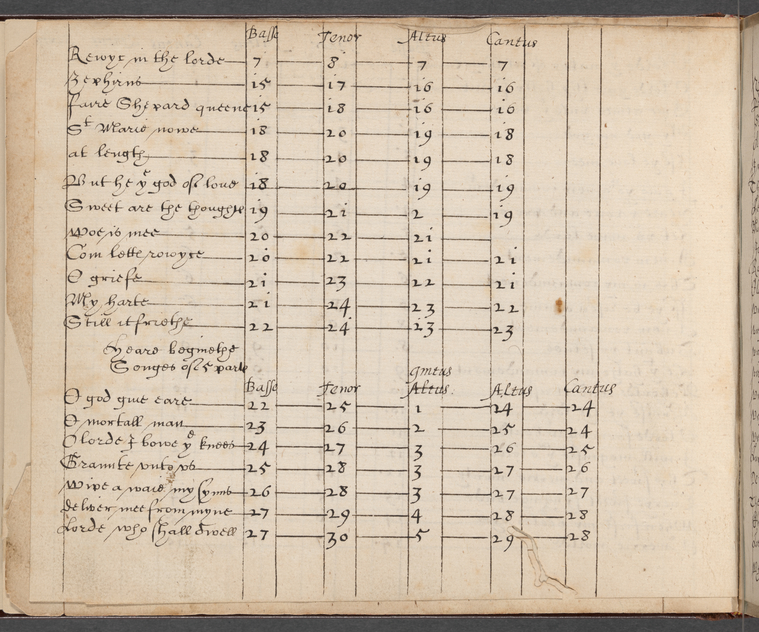 Basse Tenor Altus Cantus
Reioyc in the lorde 7 8 7 7
Zephirus 15 17 16 16
Faire Shepard queene 15 18 16 16
St Marie nowe 18 20 19 18
at length 18 20 19 18
But he ye god of love 18 20 19 19
Sweet are the thoughts 19 21 2 19
Woe is mee 20 22 21
Com lett reioyce 20 22 21 21
O griefe 21 23 22 21
My harte 21 24 23 22
Still it friethe 22 24 23 23
heare beginethe
Songes of 5 parts
Basse Tenor qintus Altus Altus Cantus
O god give eare 22 25 1 24 24
O mortall man 23 26 2 25 24
O lorde I bowe ye knees 24 27 3 26 25
Graunte unto us 25 28 3 27 26
Wipe a waie my synns 26 28 3 27 27
deliver mee from myne 27 29 4 28 28
Lorde who shall dwell 27 30 5 29 28